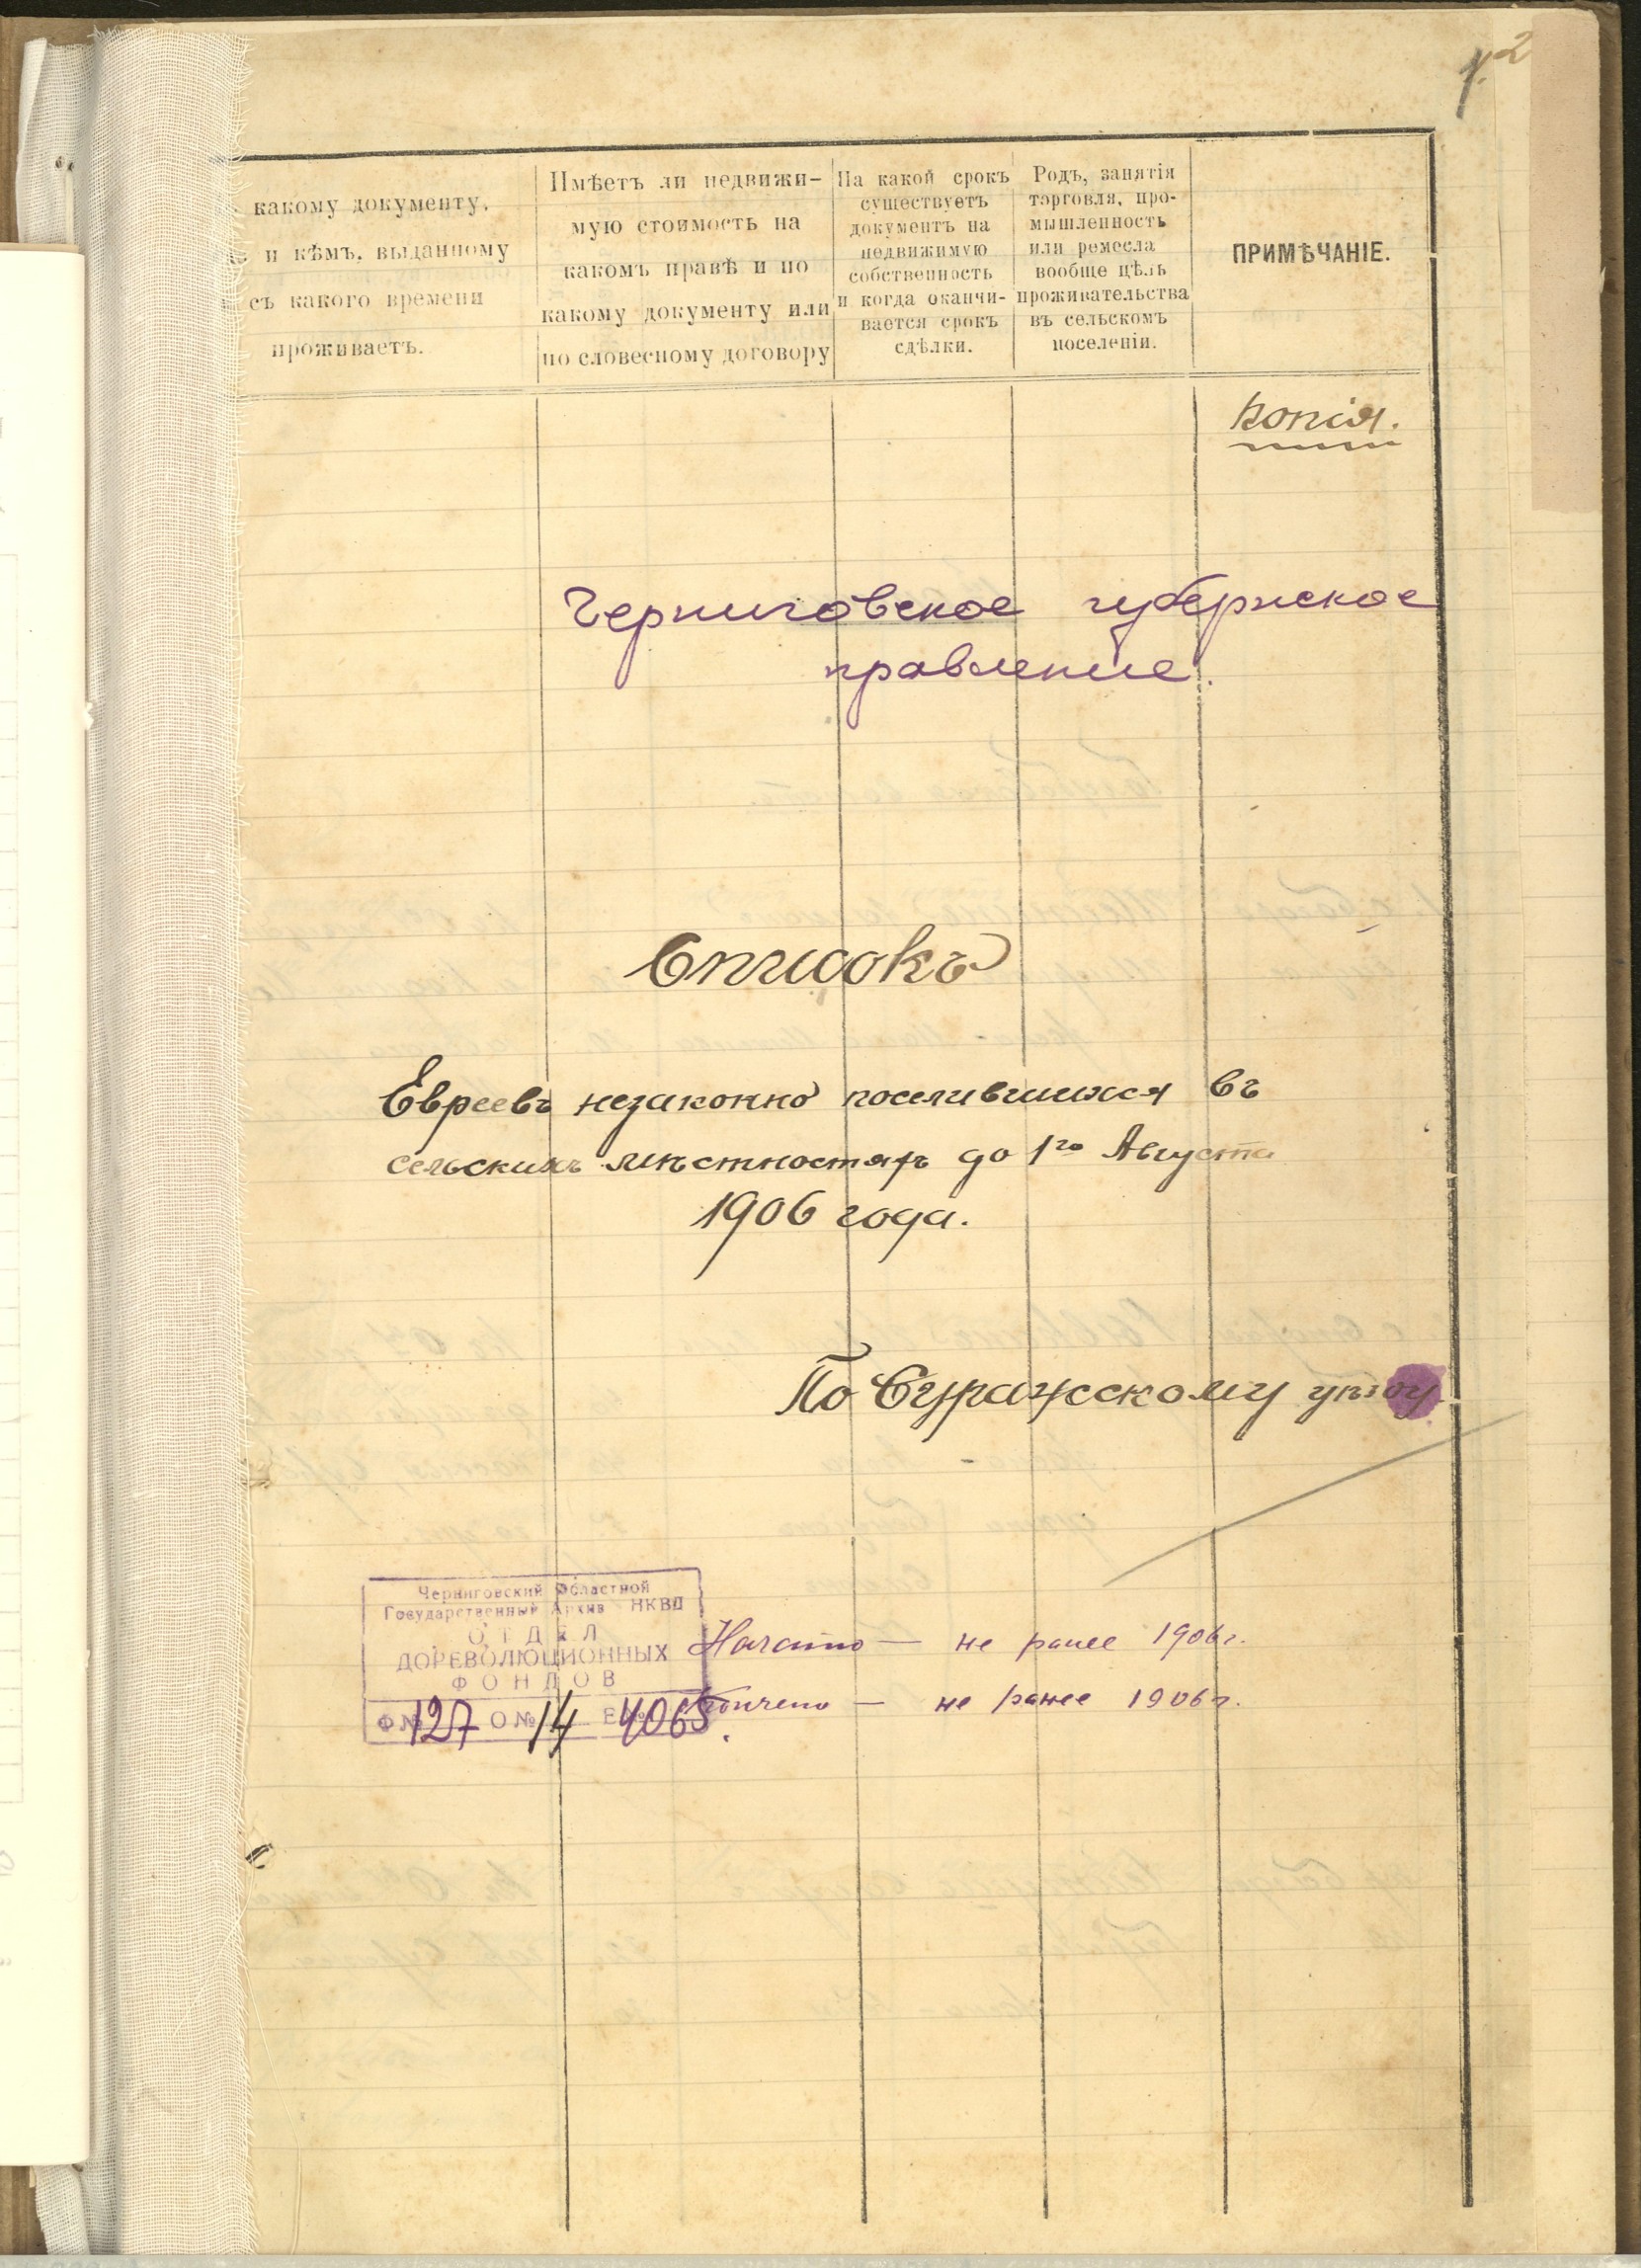 1. 2
какому документу,
и кѣмъ, выданному
съ какого времени
проживаетъ.
Имѣетъ ли недвижи-
мую стоимость на
какомъ правѣ и по
какому документу или
по словесному договору
На какой срокъ
существуетъ
документъ на
недвижимую
собственность
и когда оканчи-
вается срокъ
сдѣлки.
Родъ, занятія
торговля, про-
мышленность
или ремесла
вообще цѣль
проживательства
въ сельскомъ
поселеніи.
ПРИМѢЧАНІЕ.
Копія.
Черниговское губернское
правление.
Списокъ
Евреевъ незаконно поселившихся въ
сельскихъ мѣстностяхъ до 1го Августа
1906 года.
По Суражскому уѣзду.
Черниговский Областной
Государственный Архив НКВД
ОТДЕЛ
ДОРЕВОЛЮЦИОННЫХ
ФОНДОВ
Ф № 127 О № 14 Е № 4065.
Начато — не ранее 1906г.
Окончено — не ранее 1906г.